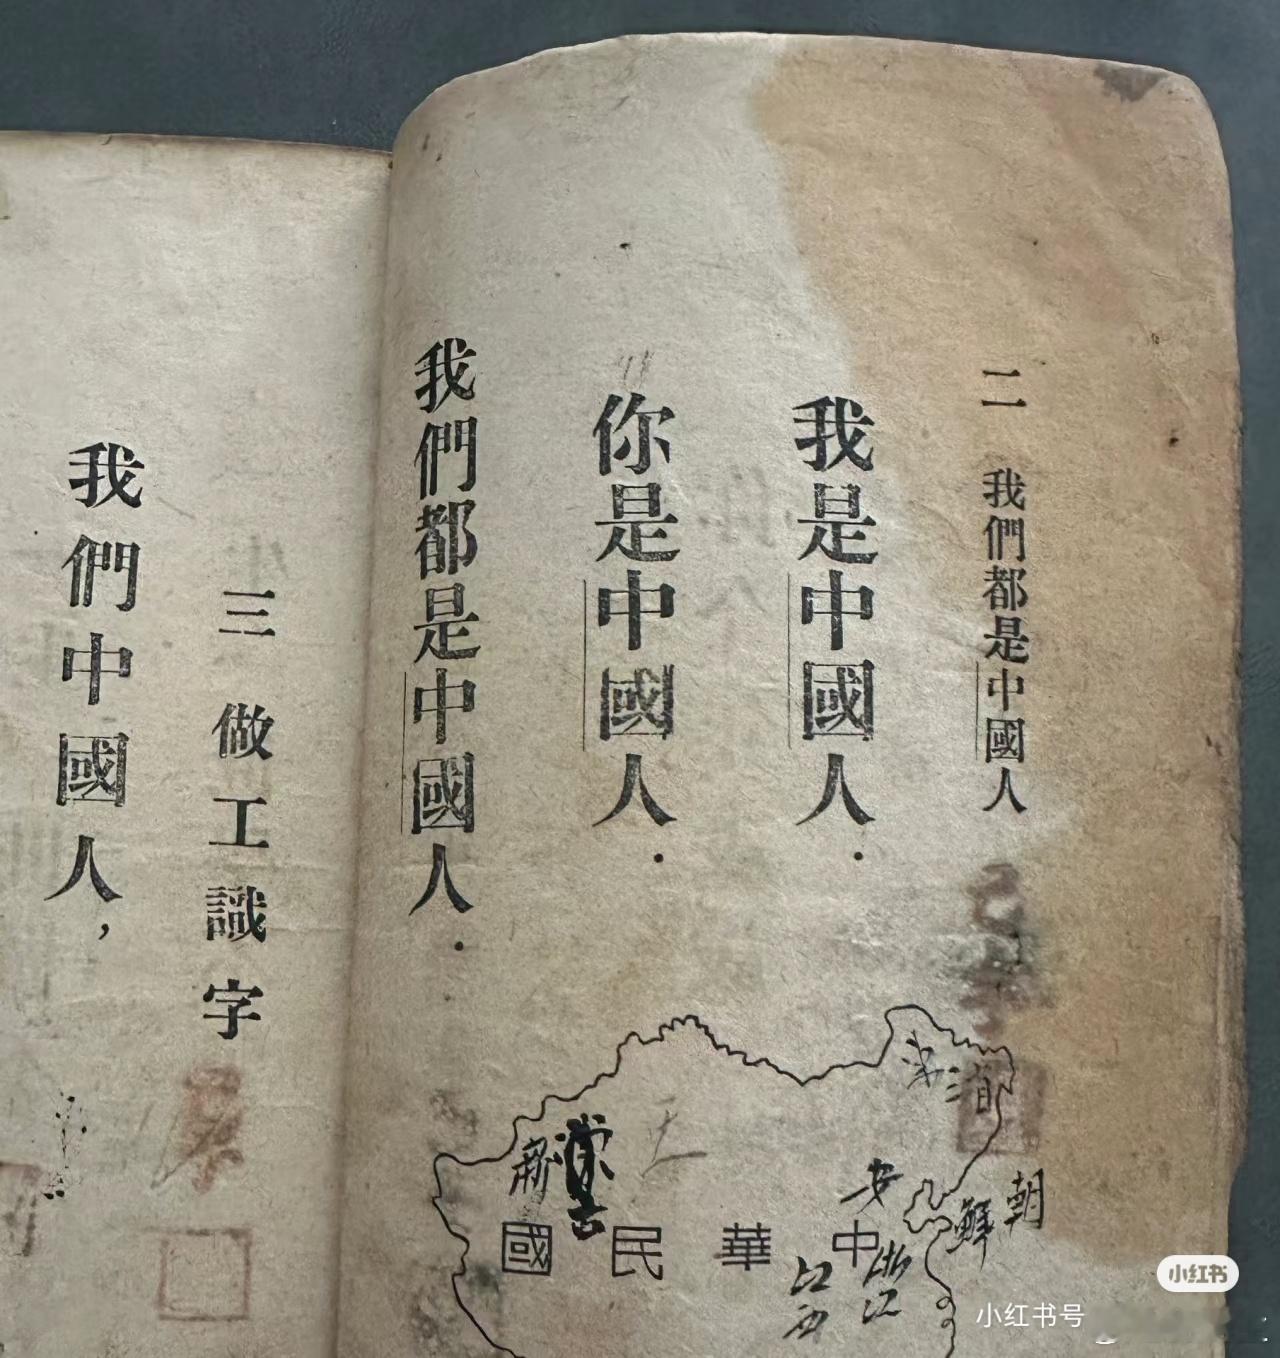 二 我們都是中國人
我是中國人．
你是中國人．
我們都是中國人．
中華民國
新
安
朝鮮
浙江
江西
三 做工識字
我們中國人，
小红书
小红书号